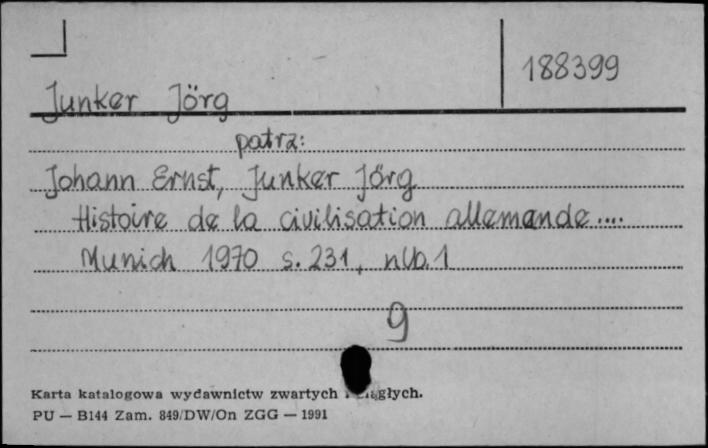 188399
Junker Jörg
patrz:
Johann Ernst, Junker Jörg
Histoire de la civilisation allemande....
Munich 1970 s. 231, nlb. 1
9
Karta katalogowa wydawnictw zwartych i ciągłych.
PU — B144 Zam. 849/DW/On ZGG — 1991